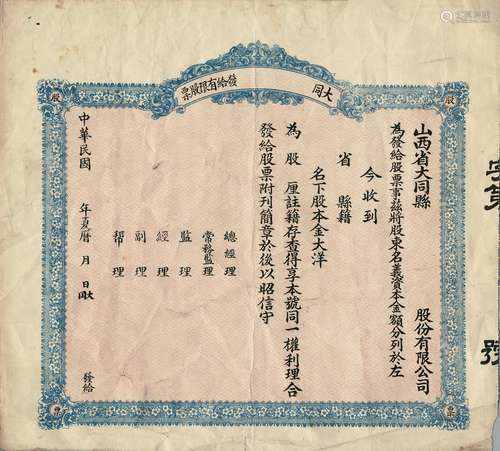 大同　　發給有限股票
股
股
票
票
山西省大同縣　　股份有限公司
為發給股票事茲將股東名義資本金額分列於左
今收到
省　縣籍
名下股本金大洋
為　股　厘註籍存查得享本號同一權利理合
發給股票附刊簡章於後以昭信守
總經理
常務監理
監理
經理
副理
幫理
中華民國　年夏曆　月　日
發給
號